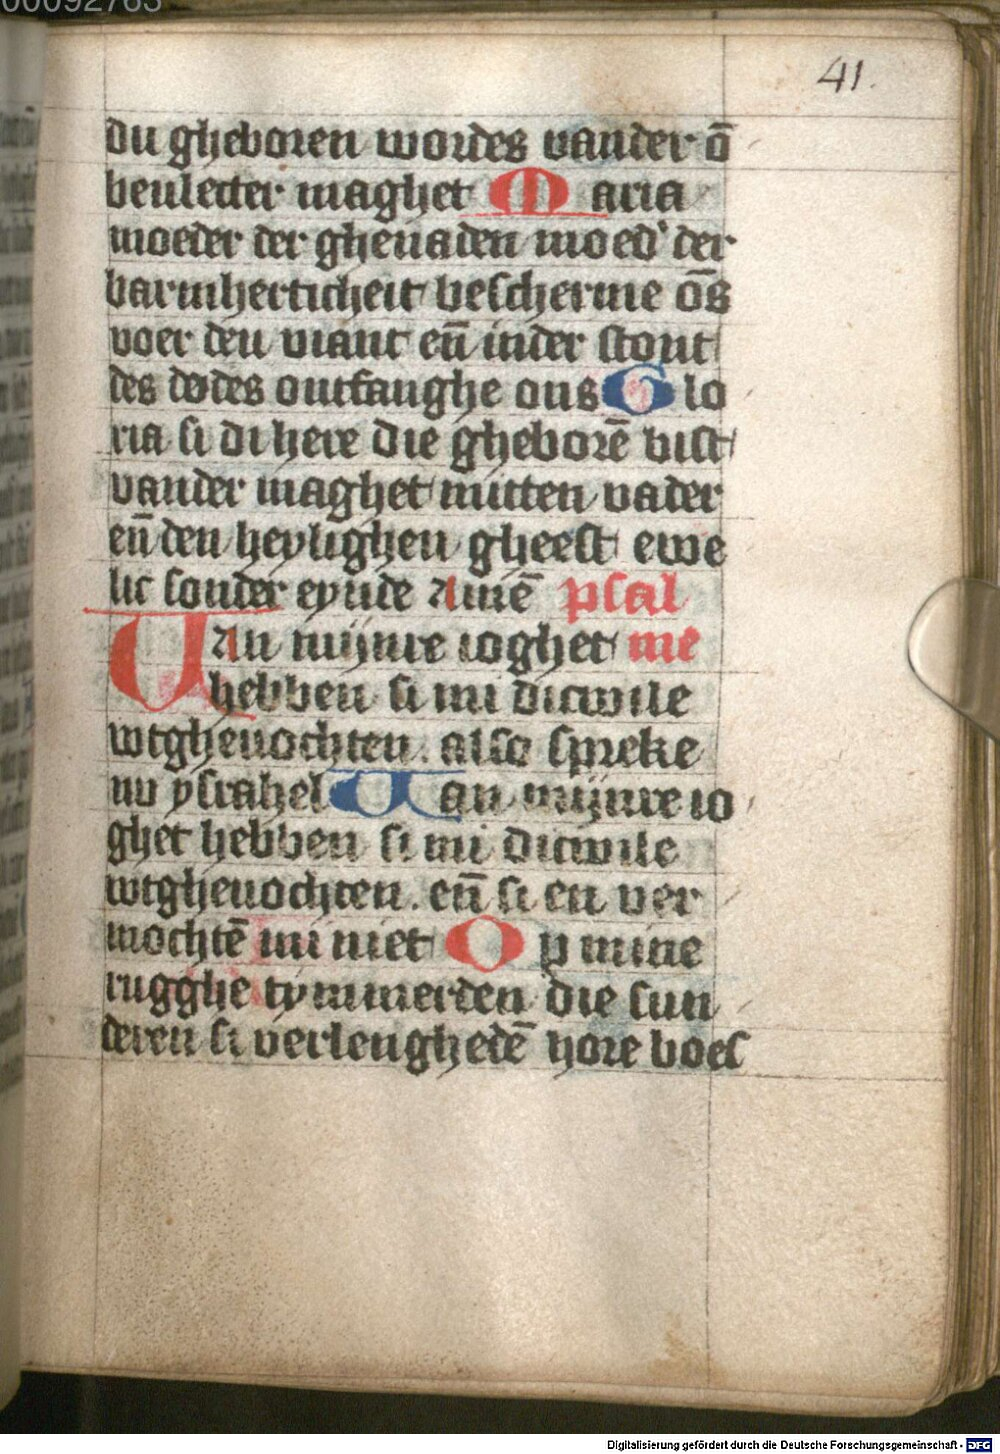 00092763
41.
du gheboren wordes vander ō
bevlecter maghet Maria
moeder der ghenaden moed' der
barmherticheit bescherme ōs
voer den viant eñ inder stont
des dodes ontfanghe ons Glo
ria si di here die gheborē bist
vander maghet mitten vader
eñ den heylighen gheest ewe
lic sonder eynde Amē psal
Van mijnre ioghet me
hebben si mi dicwile
wtghevochten. also spreke
nu ysrahel Van mijnre io
ghet hebben si mi dicwile
wtghevochten. eñ si en ver
mochtē mi niet Op mine
rugghe tymmerden die sun
deren si verlenghedē hore boes
Digitalisierung gefördert durch die Deutsche Forschungsgemeinschaft - DFG